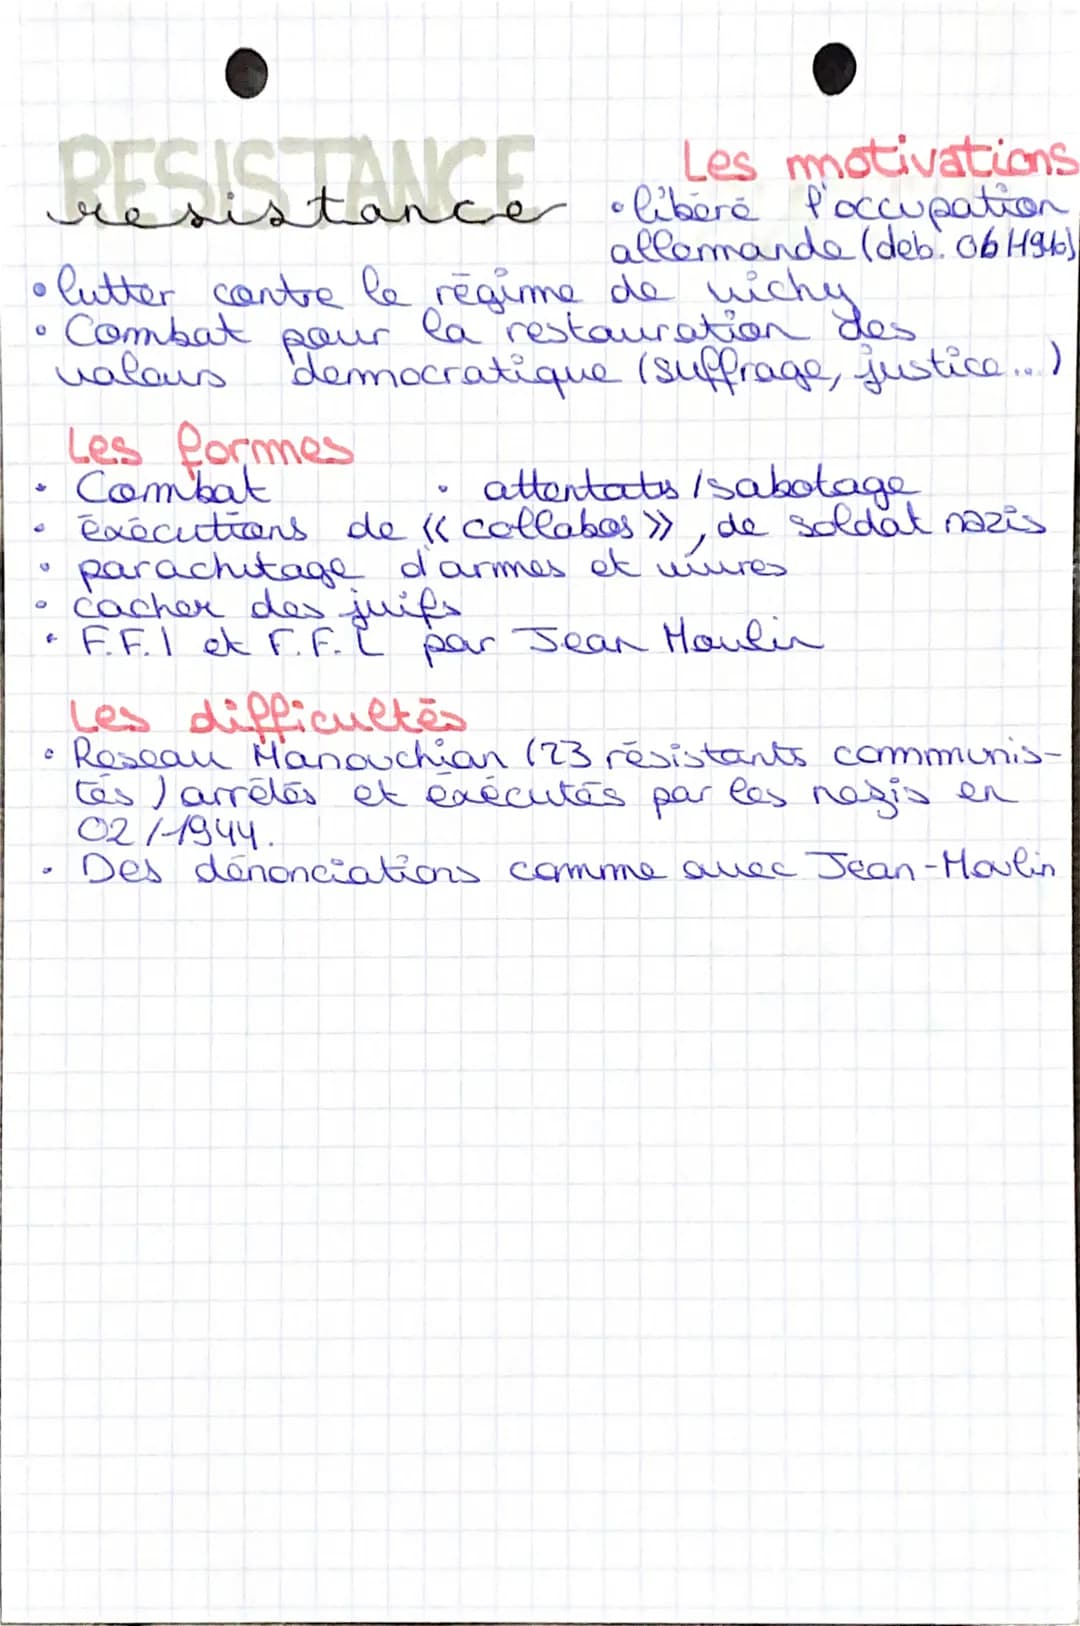 RESISTANCE
resistance
Les motivations
• libéré l'occupation
allemande (deb. 06/1940)
• lutter contre le régime de vichy
• Combat pour la restauration des
valeurs democratique (suffrage, justice...)
Les formes
• Combat • attentats / sabotage
• éxécutions de « collabos », de soldat nazis
• parachutage d'armes et vivres
• cacher des juifs
• F.F.I et F.F.L par Jean Moulin
Les difficultés
• Reseau Manouchian (23 résistants communis-
tes) arrêtés et éxécutés par les nazis en
02/1944.
• Des dénonciations comme avec Jean-Moulin